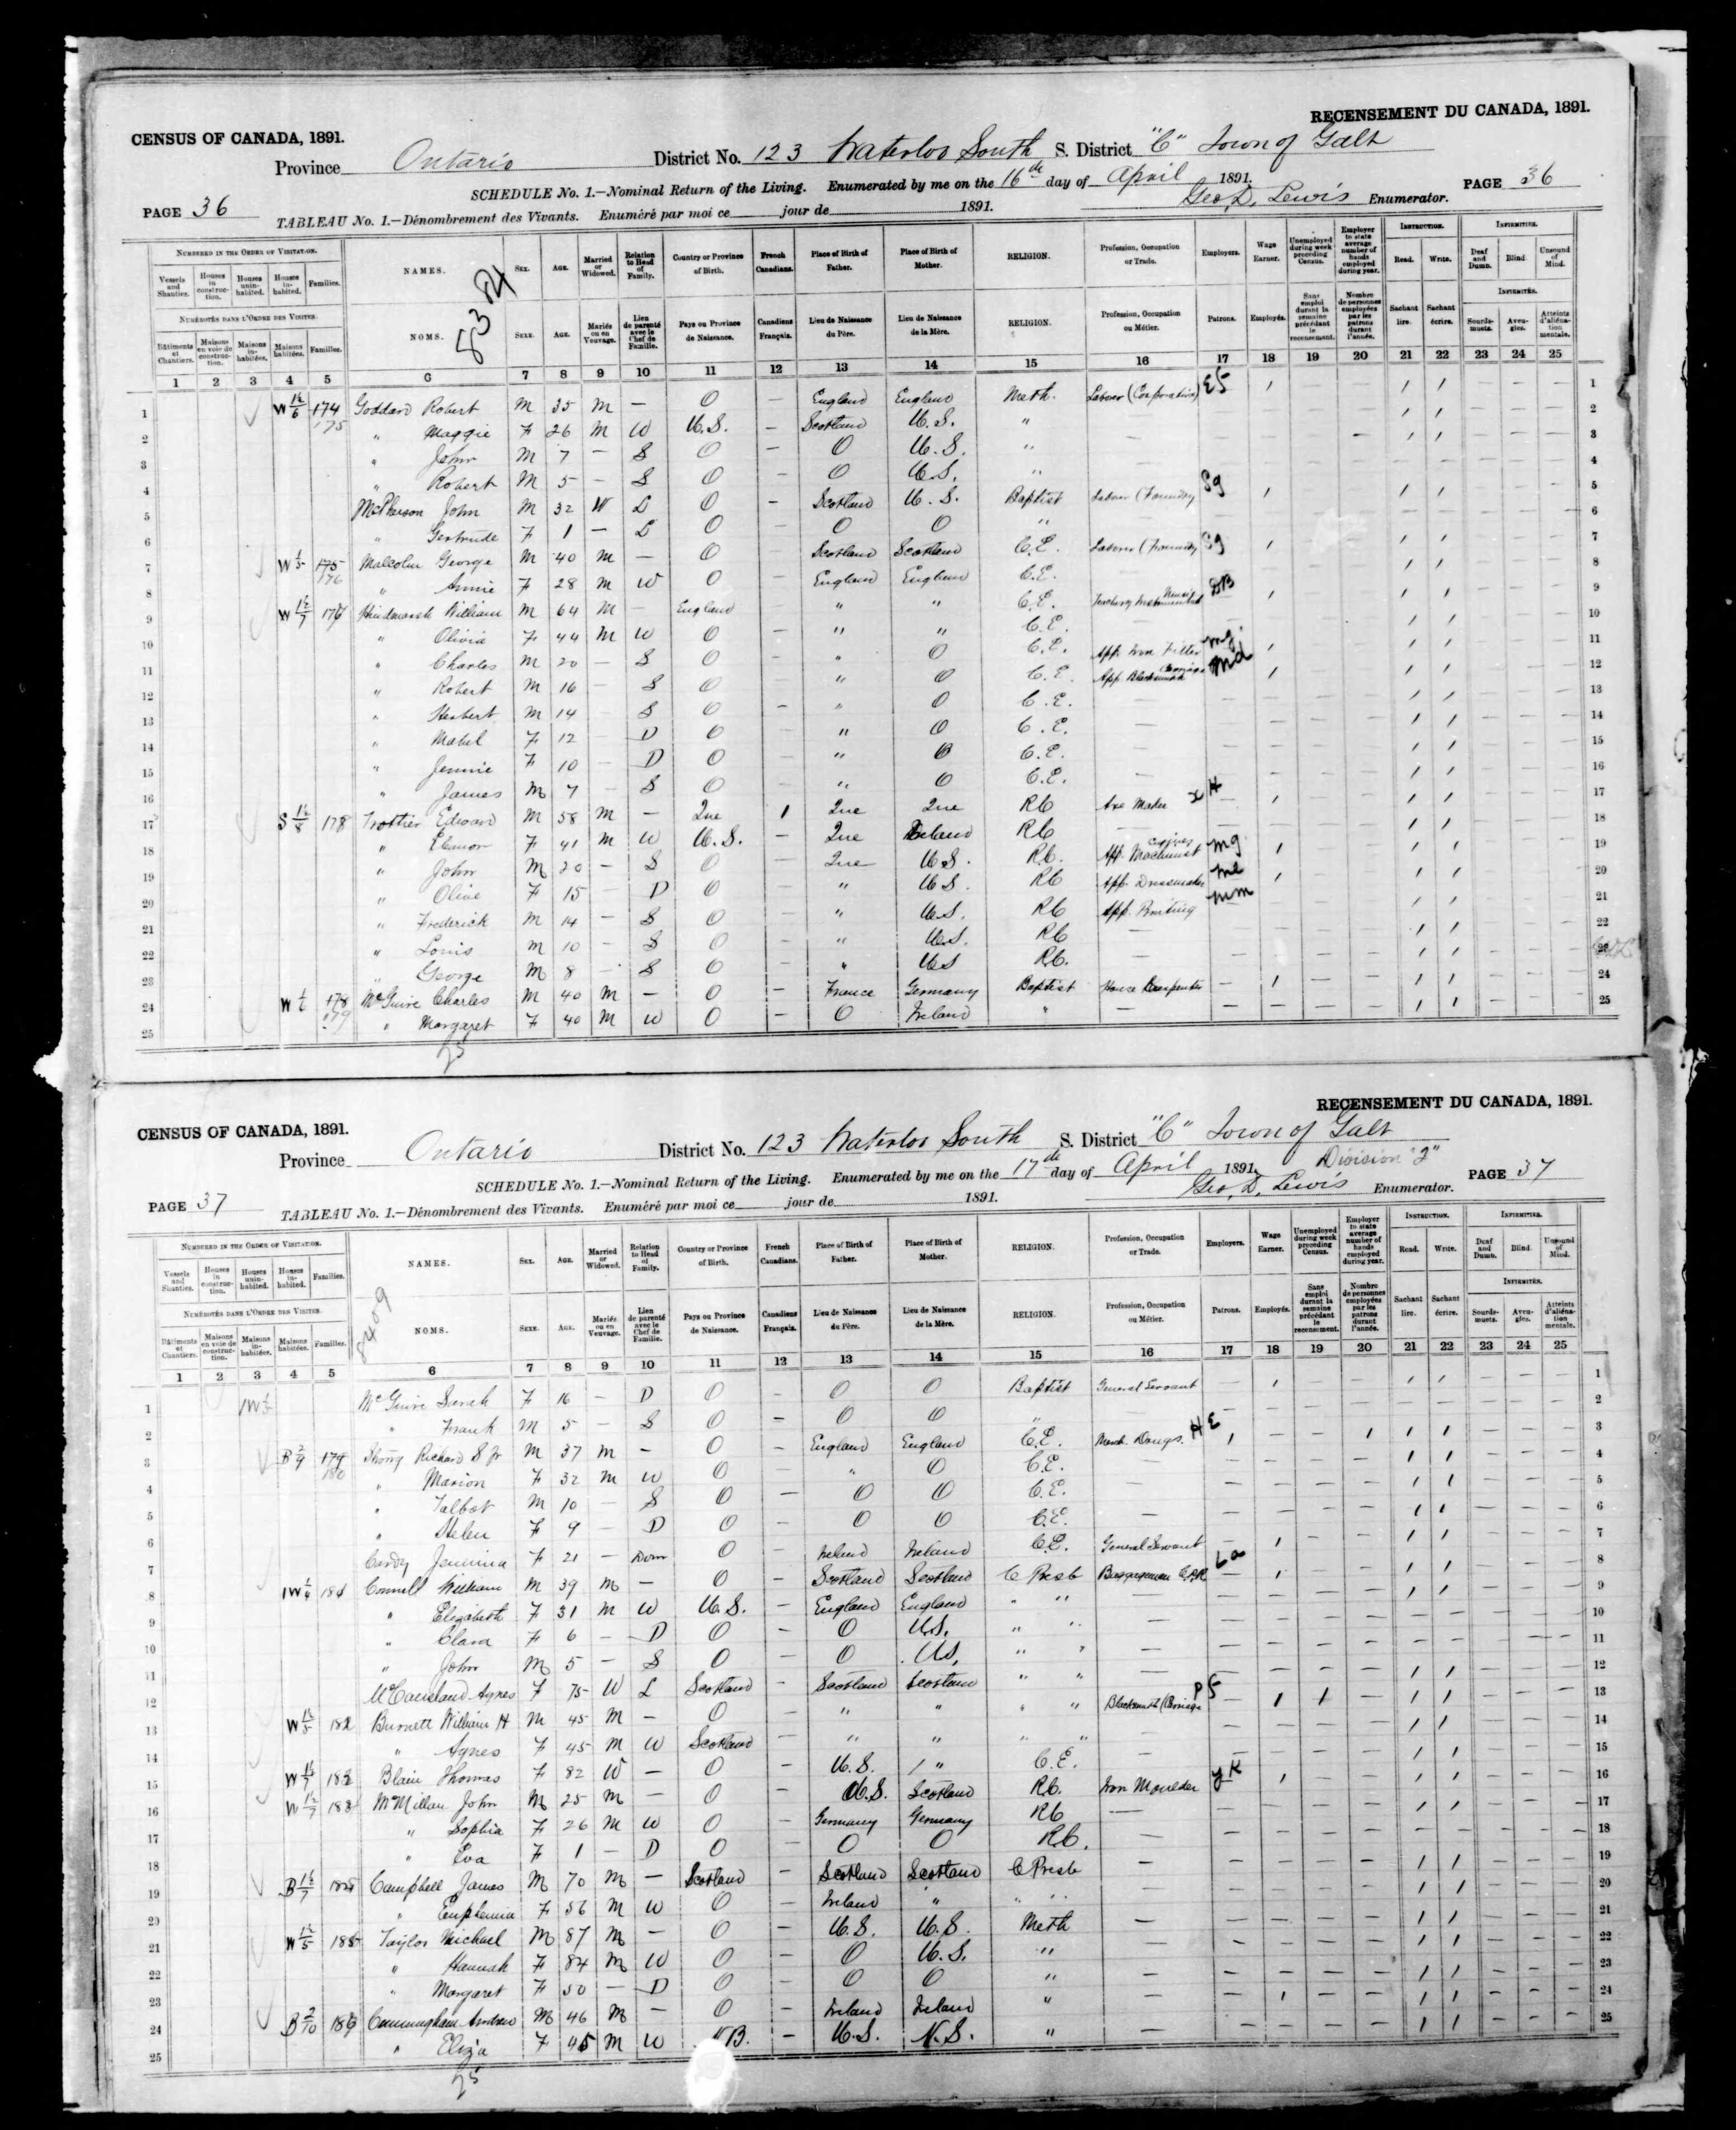 CENSUS OF CANADA, 1891. RECENSEMENT DU CANADA, 1891.
Province Ontario District No. 123 Waterloo South S. District "C" Town of Galt
SCHEDULE No. 1.—Nominal Return of the Living. Enumerated by me on the 16th day of April 1891.
PAGE 36 TABLEAU No. 1.—Dénombrement des Vivants. Enuméré par moi ce jour de 1891. Geo. D. Lewis Enumerator. PAGE 36
NUMBERED IN THE ORDER OF VISITATION. NAMES. SEX. AGE. Married or Widowed. Relation to Head of Family. Country or Province of Birth. French Canadians. Place of Birth of Father. Place of Birth of Mother. RELIGION. Profession, Occupation or Trade. Employers. Wage Earner. Unemployed during week preceding Census. Employer to state average number of hands employed during year. INSTRUCTION. Read. Write. INFIRMITIES. Deaf and Dumb. Blind. Unsound of Mind.
Vessels and Shanties. Houses in construction. Houses uninhabited. Houses inhabited. Families.
NUMÉROTÉS DANS L'ORDRE DES VISITES. NOMS. SEXE. AGE. Mariés ou en Veuvage. Lien de parenté avec le Chef de Famille. Pays ou Province de Naissance. Canadiens Français. Lieu de Naissance du Père. Lieu de Naissance de la Mère. RELIGION. Profession, Occupation ou Métier. Patrons. Employés. Sans emploi durant la semaine précédant le recensement. Nombre de personnes employées par les patrons durant l'année. Sachant lire. Sachant écrire. INFIRMITÉS. Sourds-muets. Aveugles. Atteints d'aliénation mentale.
Bâtiments et Chantiers. Maisons en voie de construction. Maisons inhabitées. Maisons habitées. Familles.
8384
1 2 3 4 5 6 7 8 9 10 11 12 13 14 15 16 17 18 19 20 21 22 23 24 25
1 W 1½/6 174 175 Goddard Robert M 35 M — O — England England Meth. Laborer (Corporation) E5 1 1 1 1
2 " Maggie F 26 M W U.S. — Scotland U.S. " 1 1 2
3 " John M 7 — S O — O U.S. " 1 1 3
4 " Robert M 5 — S O O U.S. " 4
5 McPherson John M 32 W L O — Scotland U.S. Baptist Laborer (Foundry Sg 1 1 1 5
6 " Gertrude F 1 — L O — O O " 6
7 W 1/5 175 176 Malcolm George M 40 M — O Scotland Scotland C.E. Laborer (Foundry Sg 1 1 1 7
8 " Annie F 28 M W O — England England C.E. 1 1 8
9 W 1½/7 177 Hindmarsh William M 64 M — England " " C.E. Teaching Music Instrumental DB 1 1 1 9
10 " Olivia F 44 M W O — " " C.E. 1 1 10
11 " Charles M 20 — S O — " O C.E. App. Iron Fitter mg. 1 1 1 11
12 " Robert M 16 — S O " O C.E. App. Blacksmith Carriage md 1 1 1 12
13 " Herbert M 14 — S O — " O C.E. 1 1 13
14 " Mabel F 12 — D O " O C.E. 1 1 14
15 " Jennie F 10 — D O " O C.E. 1 1 15
16 " James M 7 — S O " O C.E. 1 1 16
17 S 1½/8 178 Trottier Edward M 58 M — Que 1 Que Que RC Axe Maker H 1 1 1 17
18 " Eleanor F 41 M W U.S. — Que Ireland RC 1 1 18
19 " John M 20 — S O — Que U.S. R.C. App. Machinist mg 1 1 1 19
20 " Olive F 15 — D O — " U.S. RC App. Dressmaker me 1 1 1 20
21 " Frederick M 14 — S O — " U.S. RC App. Printing mm 1 1 21
22 " Louis M 10 — S O — " U.S. RC 1 1 22
23 " George M 8 — S O — " U.S RC. 1 1 23
24 W 178 179 McGuire Charles M 40 M — O — France Germany Baptist House Carpenter — 1 1 1 24
25 " Margaret F 40 M W O — O Ireland " — 1 1 25
25
CENSUS OF CANADA, 1891. RECENSEMENT DU CANADA, 1891.
Province Ontario District No. 123 Waterloo South S. District "C" Town of Galt
Division "2"
SCHEDULE No. 1.—Nominal Return of the Living. Enumerated by me on the 17th day of April 1891.
PAGE 37 TABLEAU No. 1.—Dénombrement des Vivants. Enuméré par moi ce jour de 1891. Geo. D. Lewis Enumerator. PAGE 37
NUMBERED IN THE ORDER OF VISITATION. NAMES. SEX. AGE. Married or Widowed. Relation to Head of Family. Country or Province of Birth. French Canadians. Place of Birth of Father. Place of Birth of Mother. RELIGION. Profession, Occupation or Trade. Employers. Wage Earner. Unemployed during week preceding Census. Employer to state average number of hands employed during year. INSTRUCTION. Read. Write. INFIRMITIES. Deaf and Dumb. Blind. Unsound of Mind.
Vessels and Shanties. Houses in construction. Houses uninhabited. Houses inhabited. Families.
NUMÉROTÉS DANS L'ORDRE DES VISITES. NOMS. SEXE. AGE. Mariés ou en Veuvage. Lien de parenté avec le Chef de Famille. Pays ou Province de Naissance. Canadiens Français. Lieu de Naissance du Père. Lieu de Naissance de la Mère. RELIGION. Profession, Occupation ou Métier. Patrons. Employés. Sans emploi durant la semaine précédant le recensement. Nombre de personnes employées par les patrons durant l'année. Sachant lire. Sachant écrire. INFIRMITÉS. Sourds-muets. Aveugles. Atteints d'aliénation mentale.
Bâtiments et Chantiers. Maisons en voie de construction. Maisons inhabitées. Maisons habitées. Familles.
8409
1 2 3 4 5 6 7 8 9 10 11 12 13 14 15 16 17 18 19 20 21 22 23 24 25
1 McGuire Sarah F 16 — D O — O O Baptist General Servant — 1 1 1 1
2 " Frank M 5 — S O — O O " 2
3 B 2/9 179 180 Strong Richard S Jr M 37 M — O — England England C.E. Merch. Drugs. HE 1 — — 1 1 1 3
4 " Marion F 32 M W O " O C.E. 1 1 4
5 " Talbot M 10 — S O — O O C.E. 1 1 5
6 " Helen F 9 — D O — O O C.E. 1 1 6
7 Cardy Jemima F 21 — Dom O — Ireland Ireland C.E. General Servant 1 1 1 7
8 181 Connell William M 39 M — O — Scotland Scotland C Presb Baggageman C.P.R — 1 1 1 8
9 " Elizabeth F 31 M W U.S. — England England " " 1 1 9
10 " Clara F 6 — D O — O U.S. " " 10
11 " John M 5 — S O — O U.S. " " 11
12 McCausland Agnes F 75 W L Scotland — Scotland Scotland " " 1 1 12
13 W 1½/5 182 Burnett William H M 45 M — O — " " " " Blacksmith (Carriage P5 — 1 1 — 1 1 13
14 " Agnes F 45 M W Scotland — " " " " 1 1 14
15 W 1½/7 183 Blain Thomas F 82 W — O — U.S. " C.E. 1 1 15
16 W 1½/7 183 McMillan John M 25 M — O U.S. Scotland R.C. Iron Moulder yK 1 1 1 16
17 " Sophia F 26 M W O — Germany Germany RC 1 1 17
18 " Eva F 1 — D O — O O R.C. 18
19 B 1½/7 Campbell James M 70 M — Scotland — Scotland Scotland C Presb 1 1 19
20 " Euphemia F 56 M W O — Ireland " " " 1 1 20
21 W 1½/5 Taylor Michael M 87 M — O — U.S. U.S. Meth — 1 1 21
22 " Hannah F 84 M W O — O U.S. " 1 1 22
23 " Margaret F 50 — D O — O O " 1 1 23
24 B 2/10 Cunningham Andrew M 46 M — O — Ireland Ireland " 1 1 1 24
25 " Eliza F 45 M W B. — U.S. N.S. " 1 1 25
25